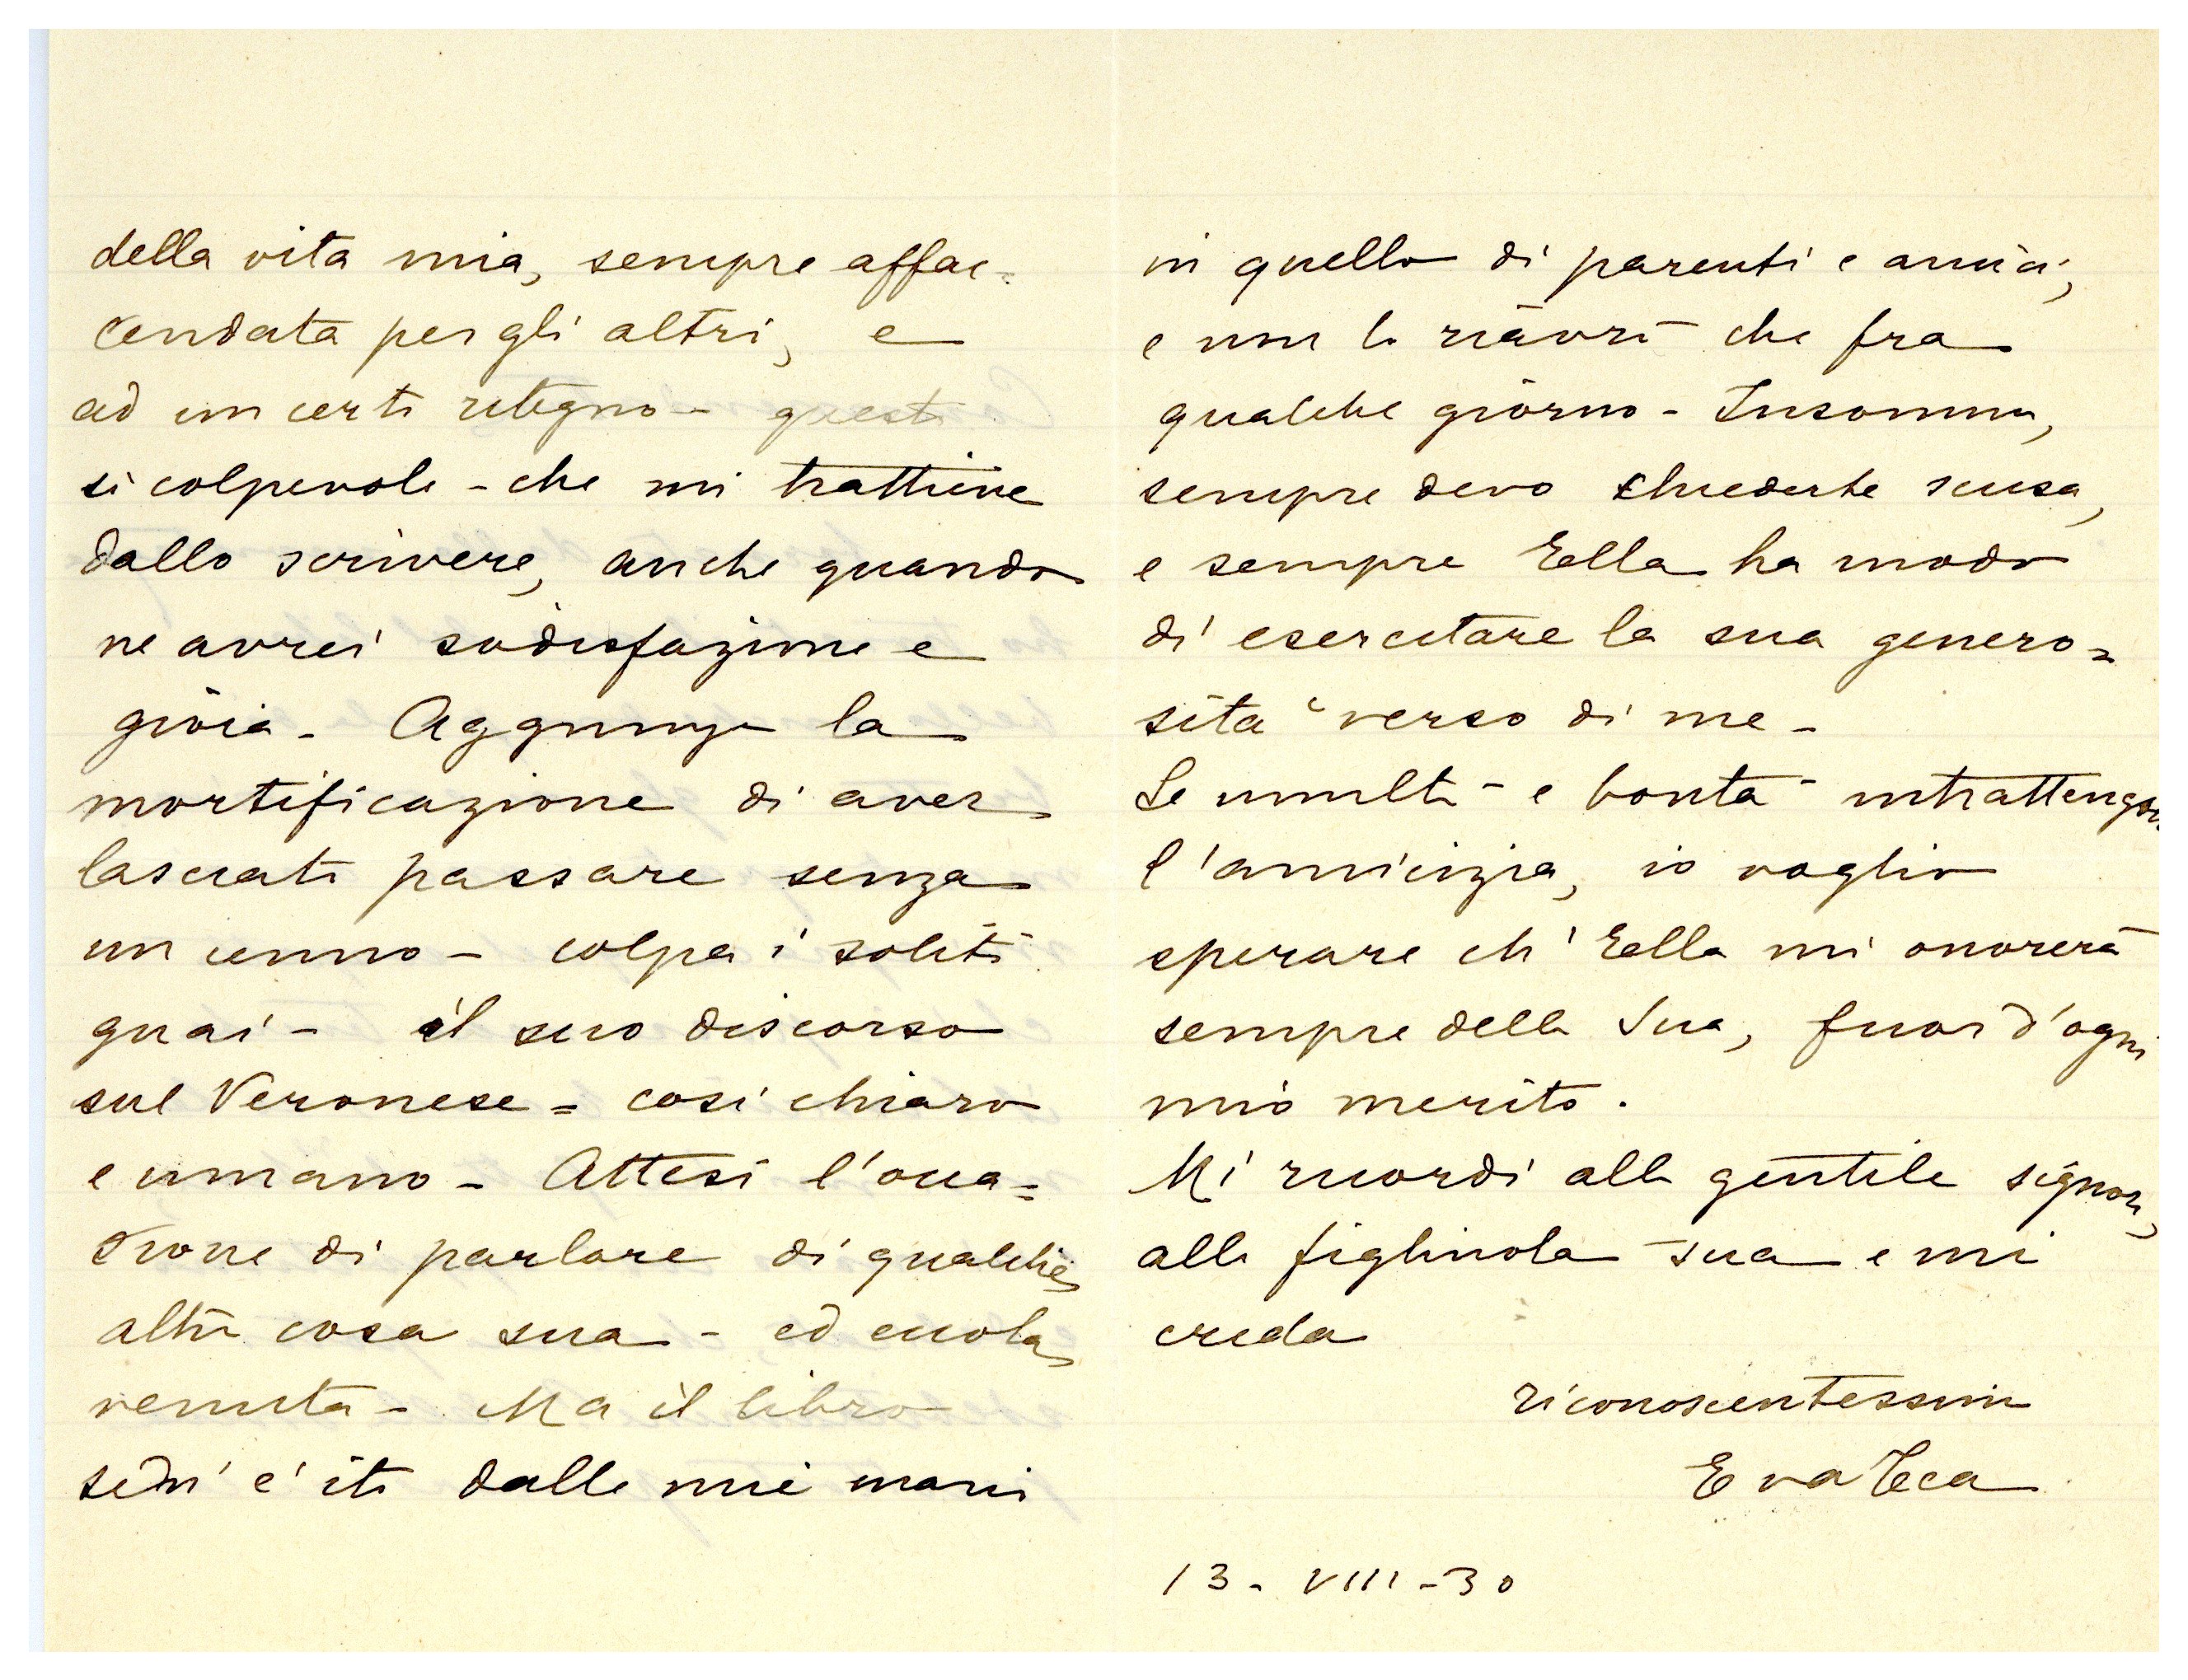 della vita mia, sempre affac=
cendata per gli altri, e
ad un certo ritegno - questo
sì colpevole - che mi trattiene
dallo scrivere, anche quando
ne avrei sodisfazione e
gioia - Aggiunga la
mortificazione di aver
lasciato passare senza
un cenno - colpa i soliti
guai - il suo discorso
sul Veronese = così chiaro
e umano - Attesi l'occa=
sione di parlare di qualche
altra cosa sua - ed eccola
venuta - Ma il libro
se n'è ito dalle mie mani
in quello di parenti e amici,
e non lo riavrò che fra
qualche giorno - Insomma,
sempre devo chiederle scusa,
e sempre Ella ha modo
di esercitare la sua genero=
sità verso di me -
Se umiltà e bontà intrattengon
l'amicizia, io voglio
sperare ch'Ella mi onorerà
sempre della Sua, fuor d'ogni
mio merito.
Mi ricordi alla gentile signora,
alla figliuola sua e mi
creda
riconoscentissima
Eva Tea
13 - VIII - 30